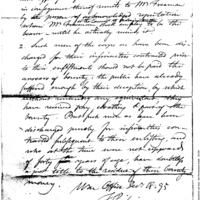 in consequence thereof unite to Mr Freeman
by the
that
bearer until he actually merits it.
2. Such men of the corps as have been dis-
charged for their infirmities contracted prior
to enlistment should not be paid the
arrears of bounty; the public have already
suffered enough by their deception by which
without rendering any equivalent they
have received pay, clothing & part of the
bounty. But such men as have been
discharged merely for infirmities con-
tracted subsequent to their enlisting and
who at the time were not upwards
of forty years of age, have doubtless
a just title to the residue of their bounty
money.
War Office Dec 18. 95